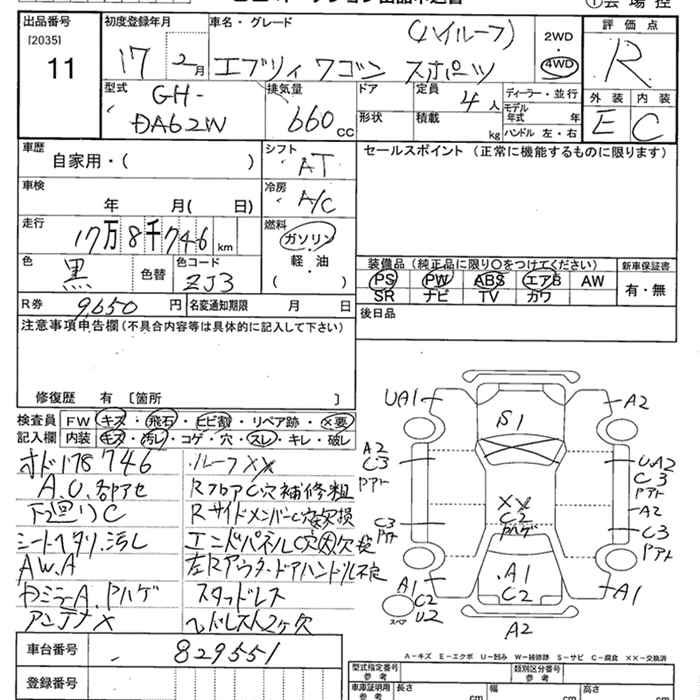 ①会場控
出品番号
[2035]
11
初度登録年月
17 2月
車名・グレード
(ハイルーフ)
エブリィ ワゴン スポーツ
2WD
4WD
評価点
R
外装 内装
E C
型式
GH-
DA62W
排気量
660 cc
ドア
形状
定員
4人
積載
kg
ディーラー・並行
モデル年式 年
ハンドル 左・右
車歴
自家用・( )
シフト
AT
セールスポイント (正常に機能するものに限ります)
車検
年 月( 日)
冷房
A/C
走行
17万8千746km
燃料
ガソリン
軽・油
( )
色
黒
色替
色コード
ZJ3
装備品(純正品に限り○をつけてください)
新車保証書
PS PW ABS エアB AW
SR ナビ TV カワ
有・無
R券 9650円
名変通知期限 月 日
後日品
注意事項申告欄(不具合内容等は具体的に記入して下さい)
修復歴 有 〔箇所 〕
検査員 FW キズ・飛石・ヒビ割・リペア跡・×要
記入欄 内装 キズ・汚レ・コゲ・穴・スレ・キレ・破レ
オド178746
A.U.各アセ
下廻りC
シートヘタリ.汚レ
AW.A
ミラーA.Pハゲ
アンテナ×
ルーフ××
RフロアC穴補修粗
RサイドメンバーC穴欠損
エンドパネルC穴欠損
左Rアウタ.ドアハンドル不良
スタッドレス
ヘッドレスト2ケ欠
UA1
S1
A2
A2
C3
Pアト
UA2
C3
Pアト
A2
C3
Pアト
××
C3
Pハゲ
C3
Pアト
A1
A1
C2
A1
スペア
C2
U2
A2
A-キズ E-エクボ U-凹み W-補修跡 S-サビ C-腐食 ××-交換済
車台番号
829551
登録番号
型式指定番号
参考
類別区分番号
参考
車庫証明用
参考
長さ cm
幅 cm
高さ cm